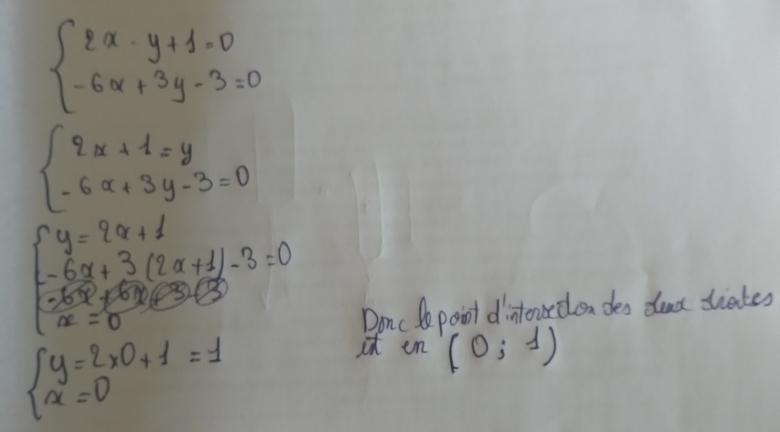 2x - y + 1 = 0
-6x + 3y - 3 = 0
2x + 1 = y
-6x + 3y - 3 = 0
y = 2x + 1
-6x + 3 (2x + 1) - 3 = 0
-6x + 6x + 3 - 3
x = 0
y = 2x0 + 1 = 1
x = 0
Donc le point d'intersection des deux droites
est en (0 ; 1)